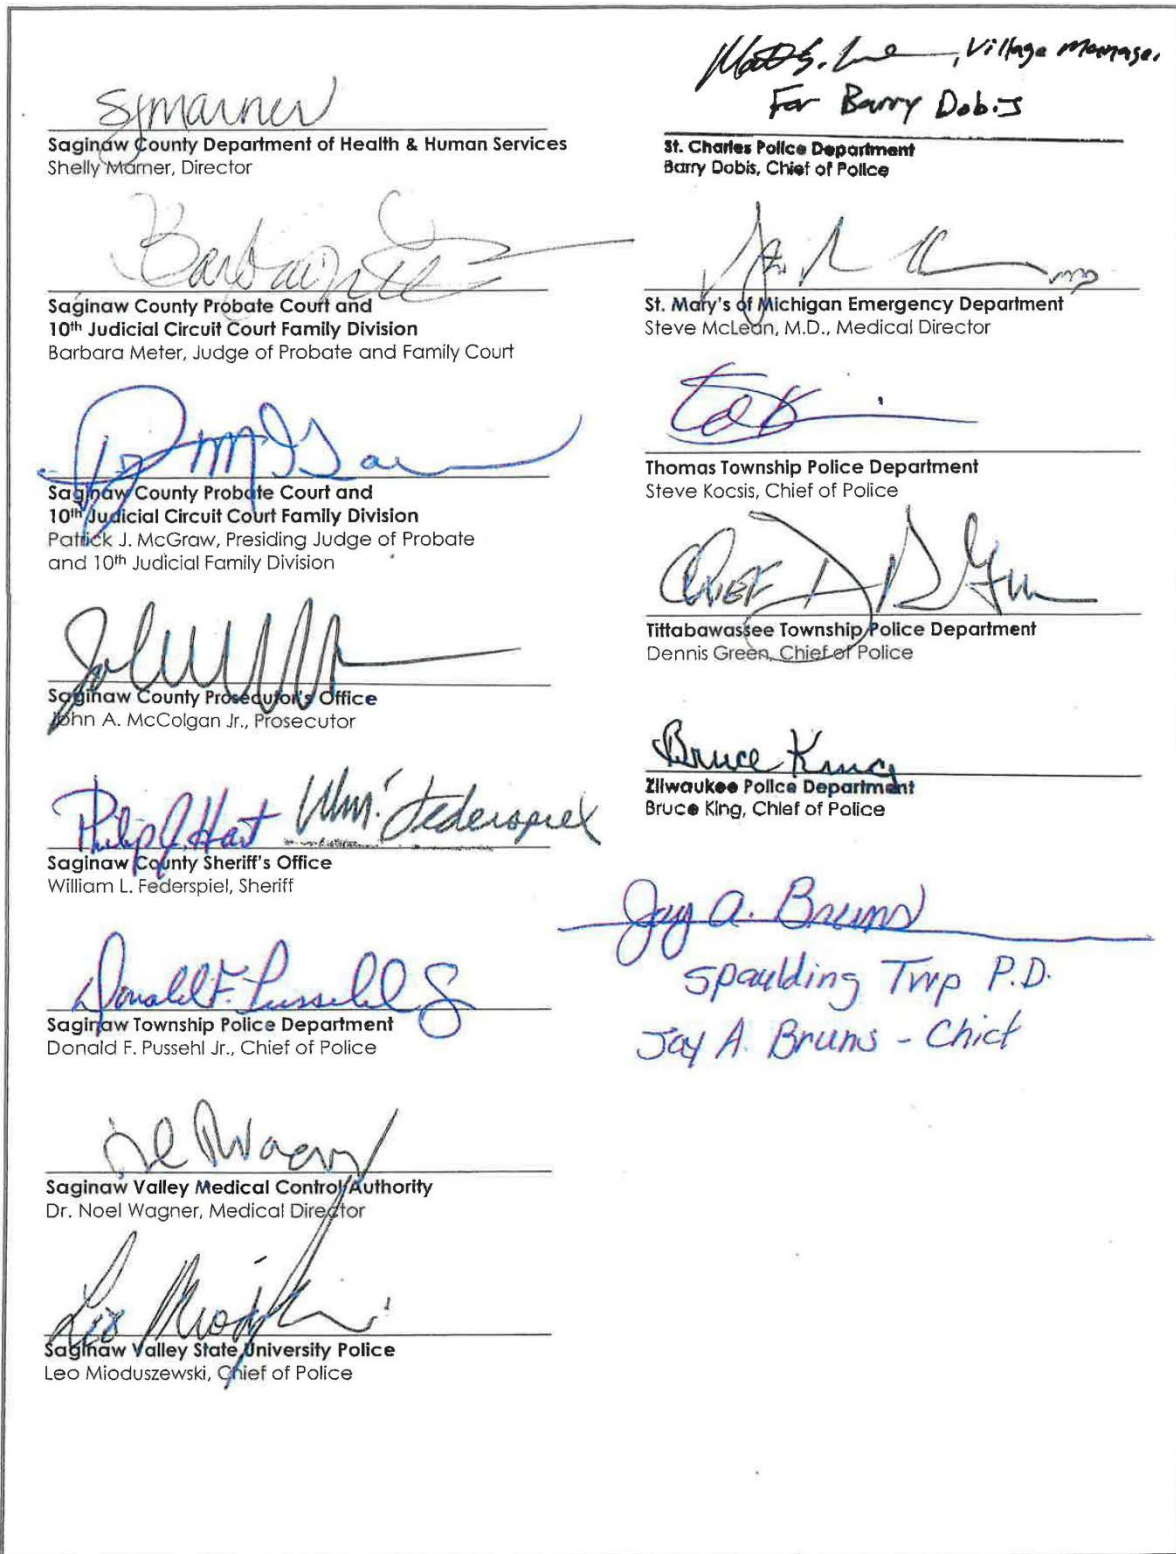 SJMarner
Saginaw County Department of Health & Human Services
Shelly Marner, Director
Saginaw County Probate Court and
10th Judicial Circuit Court Family Division
Barbara Meter, Judge of Probate and Family Court
Saginaw County Probate Court and
10th Judicial Circuit Court Family Division
Patrick J. McGraw, Presiding Judge of Probate
and 10th Judicial Family Division
Saginaw County Prosecutor's Office
John A. McColgan Jr., Prosecutor
Philip J. Hart Wm. Federspiel
Saginaw County Sheriff's Office
William L. Federspiel, Sheriff
Donald F. Pussehl Jr
Saginaw Township Police Department
Donald F. Pussehl Jr., Chief of Police
Saginaw Valley Medical Control Authority
Dr. Noel Wagner, Medical Director
Saginaw Valley State University Police
Leo Mioduszewski, Chief of Police
, Village Manager
For Barry Dobis
St. Charles Police Department
Barry Dobis, Chief of Police
St. Mary's of Michigan Emergency Department
Steve McLean, M.D., Medical Director
Thomas Township Police Department
Steve Kocsis, Chief of Police
Chief
Tittabawassee Township Police Department
Dennis Green, Chief of Police
Bruce King
Zilwaukee Police Department
Bruce King, Chief of Police
Jay A. Bruns
Spaulding Twp P.D.
Jay A. Bruns - Chief